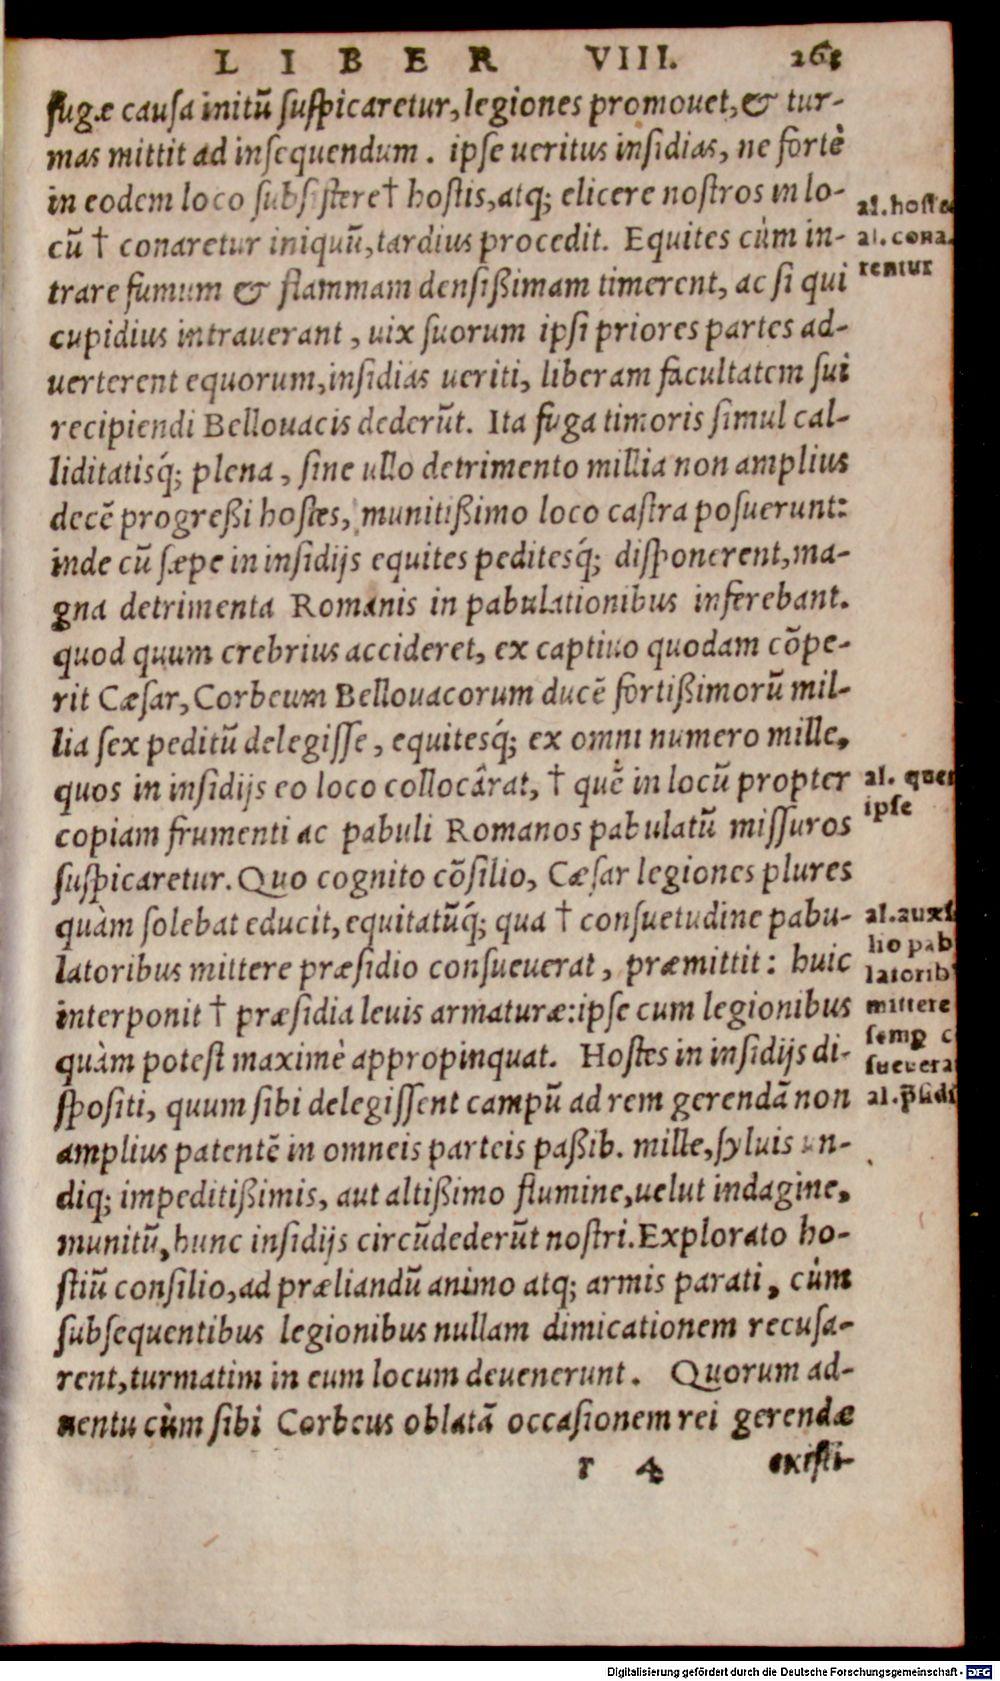 LIBER VIII. 263
fugæ causa initũ suspicaretur, legiones promouet, & tur-
mas mittit ad insequendum. ipse ueritus insidias, ne fortè
in eodem loco subsisteret † hostis, atq; elicere nostros in lo-
cũ † conaretur iniquũ, tardius procedit. Equites cùm in-
trare fumum & flammam densißimam timerent, ac si qui
cupidius intrauerant, uix suorum ipsi priores partes ad-
uerterent equorum, insidias ueriti, liberam facultatem sui
recipiendi Bellouacis dederũt. Ita fuga timoris simul cal-
liditatisq́; plena, sine ullo detrimento millia non amplius
decẽ progreßi hostes, munitißimo loco castra posuerunt:
inde cũ sæpe in insidijs equites peditesq́; disponerent, ma-
gna detrimenta Romanis in pabulationibus inferebant.
quod quum crebrius accideret, ex captiuo quodam cõpe-
rit Cæsar, Corbeum Bellouacorum ducẽ fortißimorũ mil-
lia sex peditũ delegisse, equitesq́; ex omni numero mille,
quos in insidijs eo loco collocârat, † quẽ in locũ propter
copiam frumenti ac pabuli Romanos pabulatũ missuros
suspicaretur. Quo cognito cõsilio, Cæsar legiones plures
quàm solebat educit, equitatũq́; qua † consuetudine pabu-
latoribus mittere præsidio consueuerat, præmittit: huic
interponit † præsidia leuis armaturæ: ipse cum legionibus
quàm potest maximè appropinquat. Hostes in insidijs di-
spositi, quum sibi delegissent campũ ad rem gerendã non
amplius patentẽ in omneis parteis paßib. mille, syluis un-
diq; impeditißimis, aut altißimo flumine, uelut indagine,
munitũ, hunc insidijs circũdederũt nostri. Explorato ho-
stiũ consilio, ad præliandũ animo atq; armis parati, cùm
subsequentibus legionibus nullam dimicationem recusa-
rent, turmatim in eum locum deuenerunt. Quorum ad-
uentu cùm sibi Corbeus oblatã occasionem rei gerendæ
r 4 existi-
al. hostes
al. cona-
rentur
al. quem
ipse
al. auxi
lio pab
latorib
mittere
semp c
sueuera
al. p̃sidi
Digitalisierung gefördert durch die Deutsche Forschungsgemeinschaft - DFG